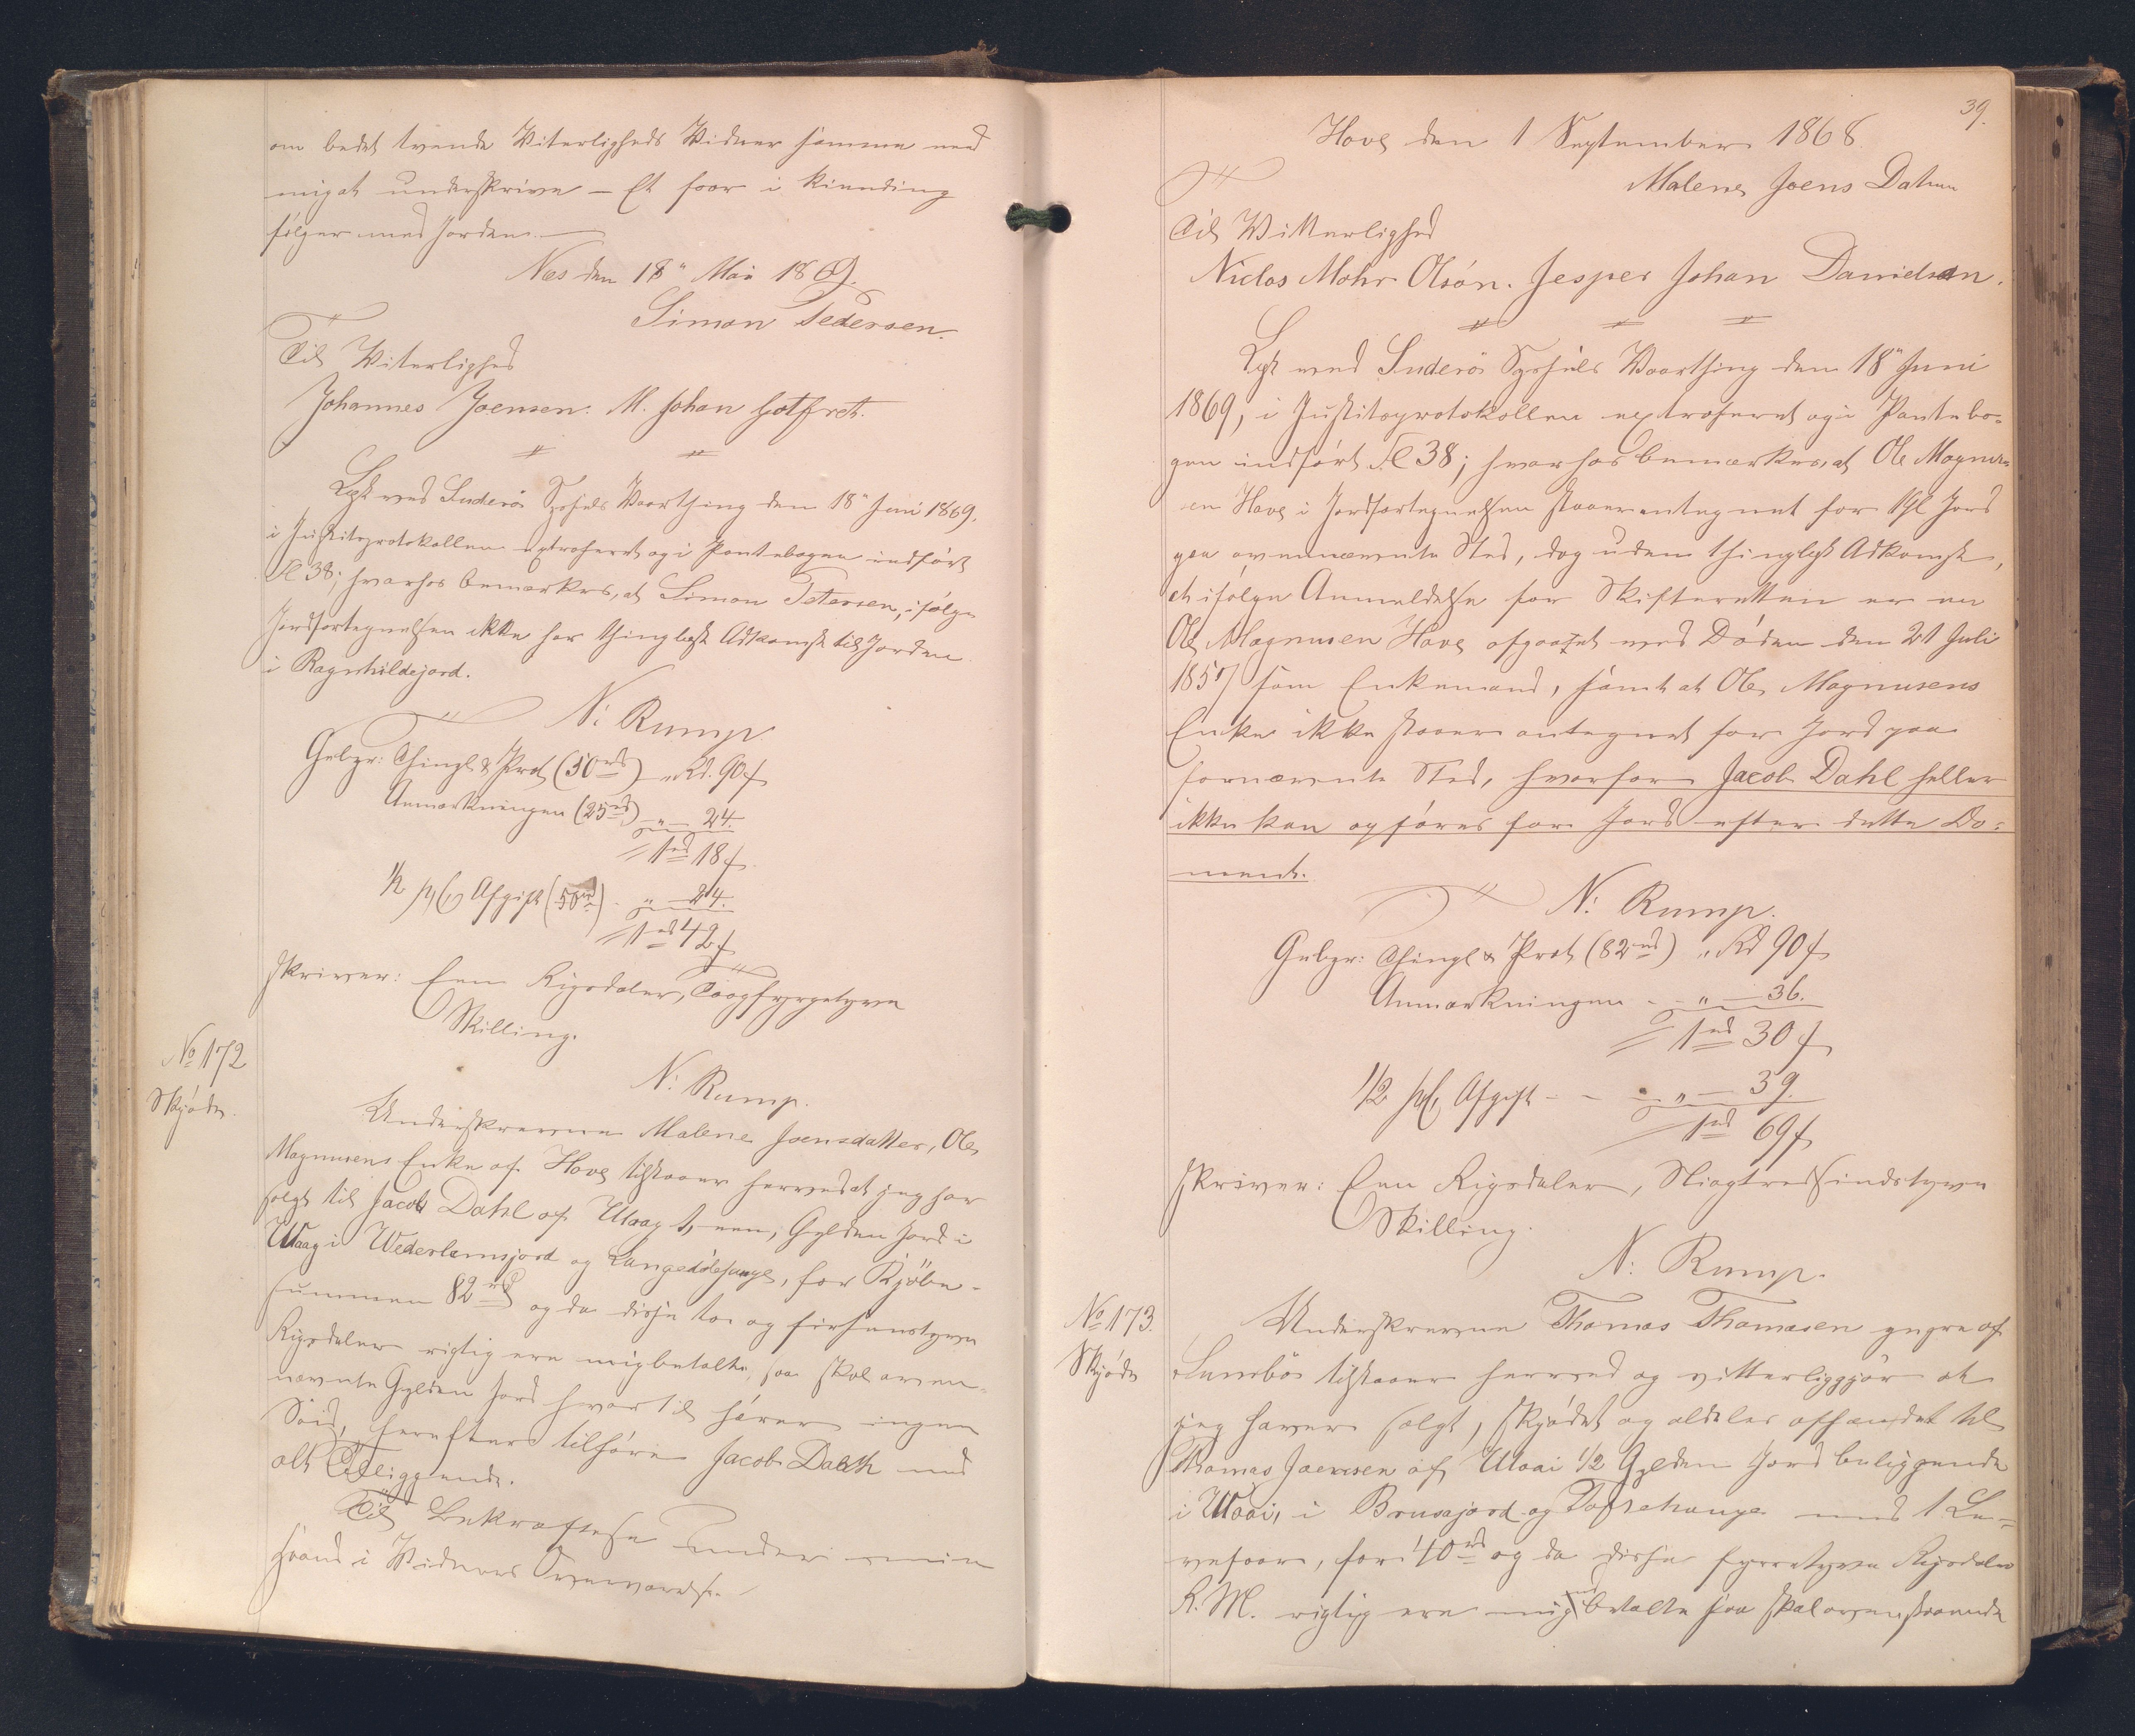 om bedet tvende Viterligheds Vidner samme med
migat underskrive – Et faar i kiending
følger med Jorden. —
Næs den 18" Mai 1869.
Simon Pedersen.
Til Viterlighed
Johannes Joensen. M. Johan Hotfret.
Læst ved Suderö Syssels Vaarthing den 18" Juni 1869,
i Justitsprotokollen extraheret og i Pantebogen indført
Fol 38; hvorhos bemærkes, at Simon Petersen, ifølge
Jordfortegnelsen ikke har thinglæst Adkomst til Jorden
i Ragnhildejord.
N: Rump
Gebyr: Thingl & Prot (50rd) " Rd. 90 s
Anmærkningen (25rd) - " — 24.
1rd 18 s.
1/2 pC Afgift (50rd) - " — 24.
1rd 42 s
skriver: Een Rigsdaler, Toogfyrgetyve
Skilling.
N: Rump.
No 172
Skjøde.
Underskrevne Malene Joensdatter, Ole
Magnusens Enke af Hove tilstaaer herved at jeg har
solgt til Jacob Dahl af Waag 1, een, Gylden Jord i
Waag i Wederlamsjord og Langedøle, for Kjöbe-
summen 82rd og da disse to og firsenstyve
Rigsdaler rigtig ere migbetalte, saa skal oven-
nævnte Gylden Jord hvortil hører ingen
Söid, herefter tilhøre Jacob Dahl med
alt Tilliggende.
Til Bekræftelse under min
Haand i Vidners Overværelse.
39.
Hove den 1 September 1868
Malene Joens Datter
Til Witterlighed
Niclas Mohr Olsön. Jesper Johan Danielsen.
Læst ved Suderö Syssels Vaarthing den 18" Juni
1869, i Justitsprotokollen extraheret og i Pantebo-
gen indført Fol 38; hvorhos bemærkes, at Ole Magnus-
en Hove i Jordfortegnelsen staaer antegnet for 1 Gl Jord
paa ovennævnte Sted, dog uden thinglæst Adkomst,
at ifølge Anmeldelse for Skifteretten er en
Ole Magnusen Hove afgaaet ved Døden den 21 Juli
1857 som Enkemand, samt at Ole Magnusens
Enke ikke staaer antegnet for Jord paa
fornævnte Sted, hvorfor Jacob Dahl heller
ikke kan opføres for Jord efter dette Do-
ment.
N: Rump.
Gebyr: Thingl & Prot (82rd) " Rd 90 s
Anmærkningen - - " — 36.
1rd 30 s
1/2 pC. Afgift - - - " — 39.
1rd 69 s
skriver: Een Rigsdaler, Niogtredsindstyve
Skilling.
N: Rump.
No 173.
Skjøde
Underskrevne Thomas Thomasen yngre af
Sumbö tilstaaer herved og vitterliggjør at
jeg haver solgt, skjødet og aldeles afhændet til
Thomas Joensen af Waai 1/2 Gylden Jord beliggende
i Waai, i Brusajord og Toftehauge med 1 Le-
vefaar, for 40rd og da disse fyrretyve Rigsdaler
R. M. rigtig ere mig betalte saa skal ovenstaaende